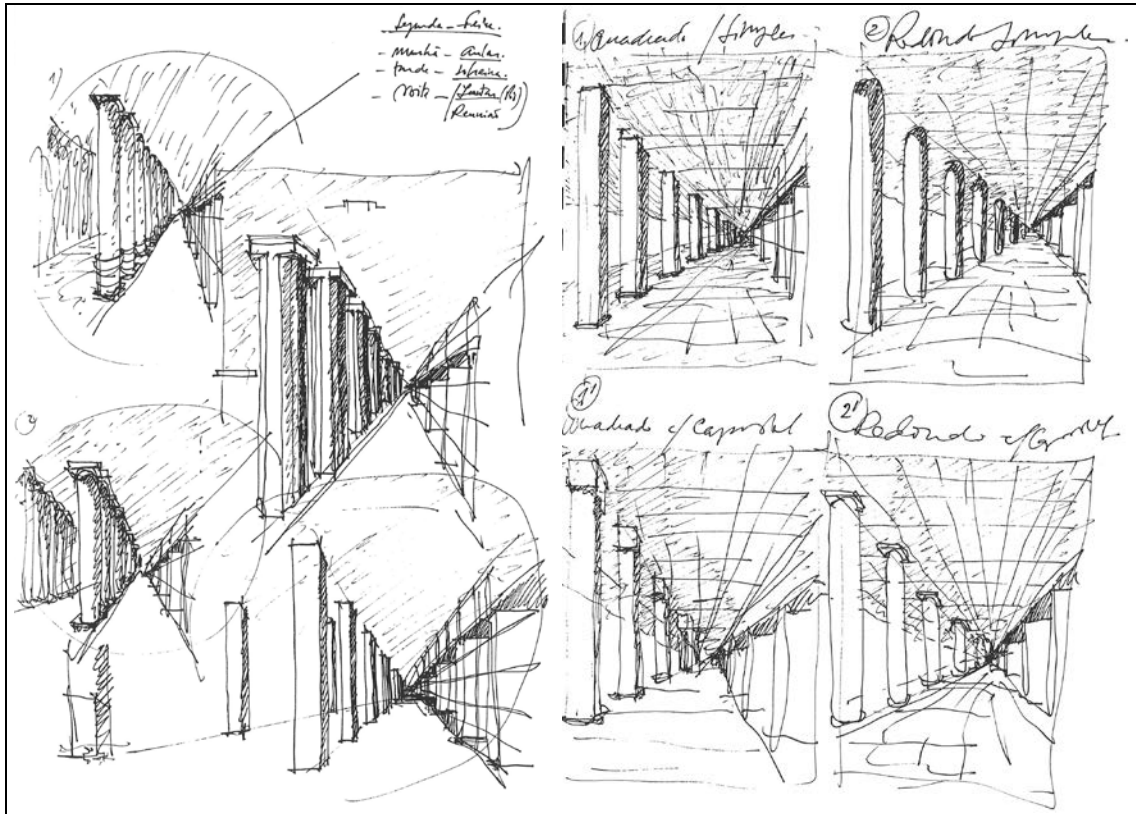 Segunda-feira.
- manhã - aulas.
- tarde -
- noite -
Reunião
1)
2)
① Quadrado / Simples
② Redondo Simples
①'
Quadrado c/ Capitel
②' Redondo c/ Capitel